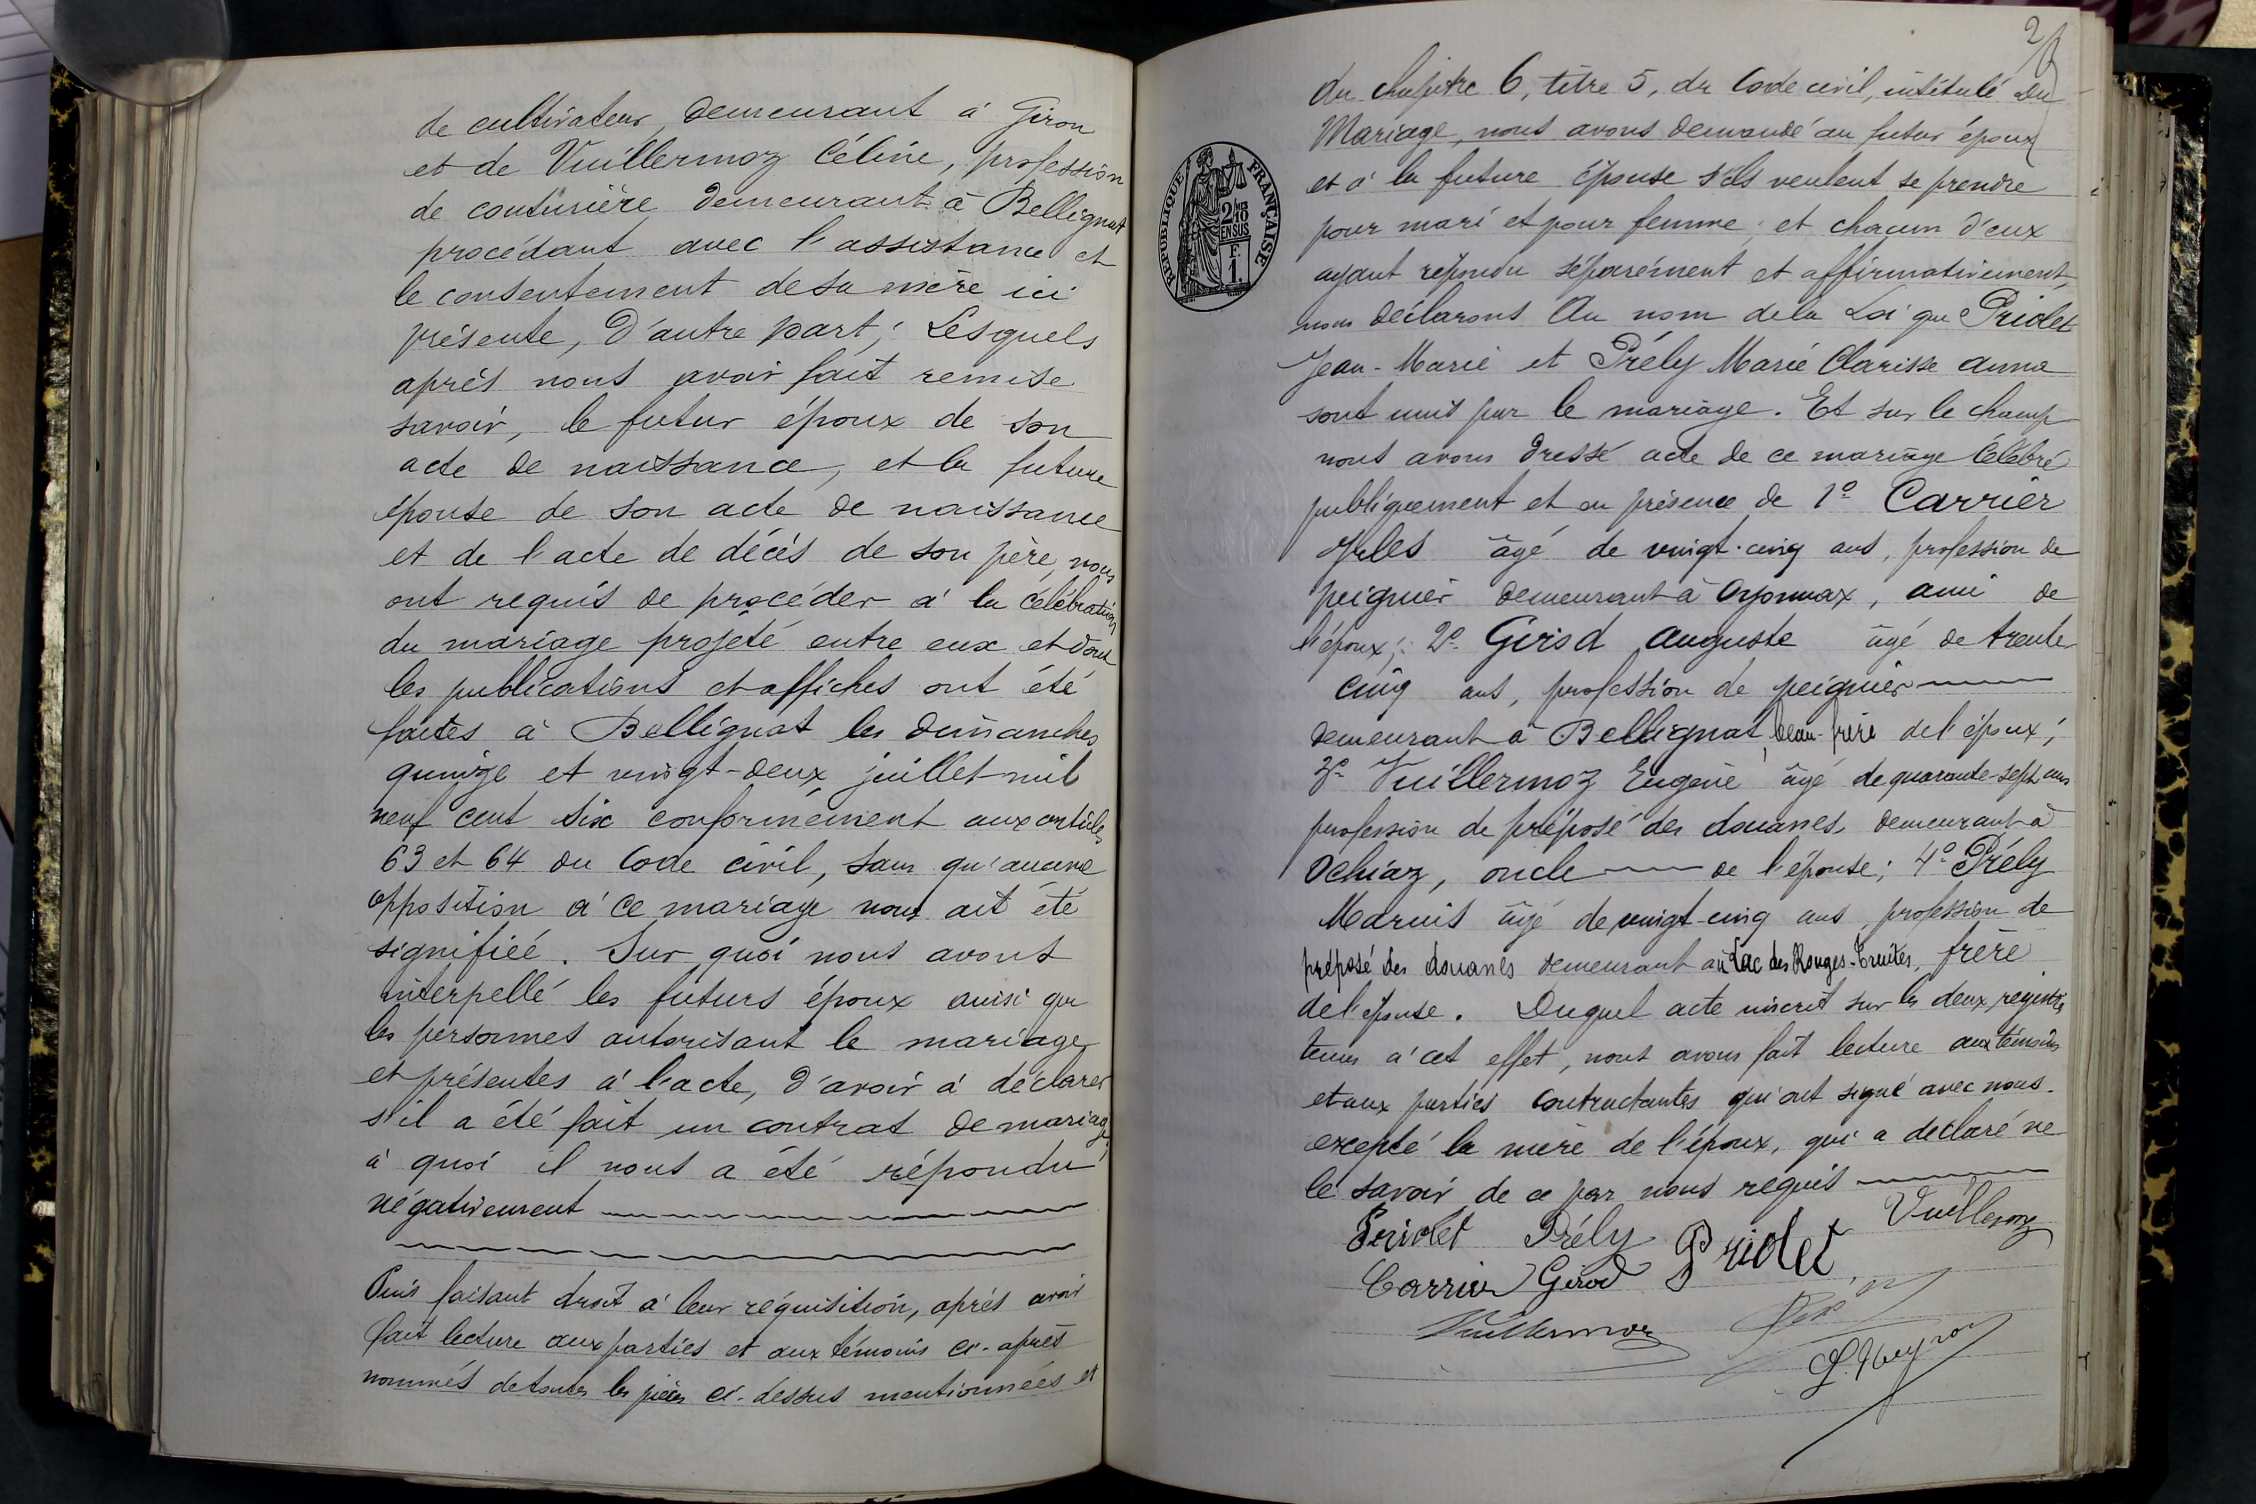 de cultivateur, demeurant à Giron
et de Vuillermoz Céline, profession
de couturière demeurant à Bellignat
procédant avec l'assistance et
le consentement de sa mère ici
présente, D'autre part; Lesquels
après nous avoir fait remise
savoir, le futur époux de son
acte de naissance, et la future
épouse de son acte de naissance
et de l'acte de décès de son père, nous
ont requis de procéder à la célébration
du mariage projeté entre eux et dont
les publications et affiches ont été
faites à Bellignat les dimanches
quinze et vingt-deux juillet mil
neuf cent six conformément aux articles
63 et 64 du Code civil, sans qu'aucune
opposition à ce mariage nous ait été
signifiée. Sur quoi nous avons
interpellé les futurs époux ainsi que
les personnes autorisant le mariage
et présentes à l'acte, d'avoir à déclarer
s'il a été fait un contrat de mariage,
à quoi il nous a été répondu
négativement
Puis faisant droit à leur réquisition, après avoir
fait lecture aux parties et aux témoins ci-après
nommés de toutes les pièces ci-dessus mentionnées et
2
du chapitre 6, titre 5, du Code civil, intitulé Du
Mariage, nous avons demandé au futur époux
et à la future épouse s'ils veulent se prendre
pour mari et pour femme; et chacun d'eux
ayant répondu séparément et affirmativement,
nous déclarons Au nom de la Loi que Priolet
Jean-Marie et Prély Marie Clarisse Anna
sont unis par le mariage. Et sur le champ
nous avons dressé acte de ce mariage célébré
publiquement et en présence de 1º Carrier
Jules âgé de vingt-cinq ans, profession de
peignier demeurant à Oyonnax, ami de
l'époux; 2º Girod Auguste âgé de trente
cinq ans, profession de peignier
demeurant à Bellignat, beau-frère de l'époux;
3º Vuillermoz Eugène âgé de quarante-sept ans
profession de préposé des douanes, demeurant à
Ochiaz, oncle de l'épouse; 4º Prély
Marius âgé de vingt-cinq ans profession de
préposé des douanes demeurant au Lac des Rouges-Truites, frère
de l'épouse. Duquel acte inscrit sur les deux registres
tenus à cet effet, nous avons fait lecture aux témoins
et aux parties contractantes qui ont signé avec nous
excepté la mère de l'époux, qui a déclaré ne
le savoir de ce par nous requis
Priolet Prély Priolet Vuillermoz
Carrier Girod
Vuillermoz
RÉPUBLIQUE FRANÇAISE
2/10
EN SUS
F.
1.